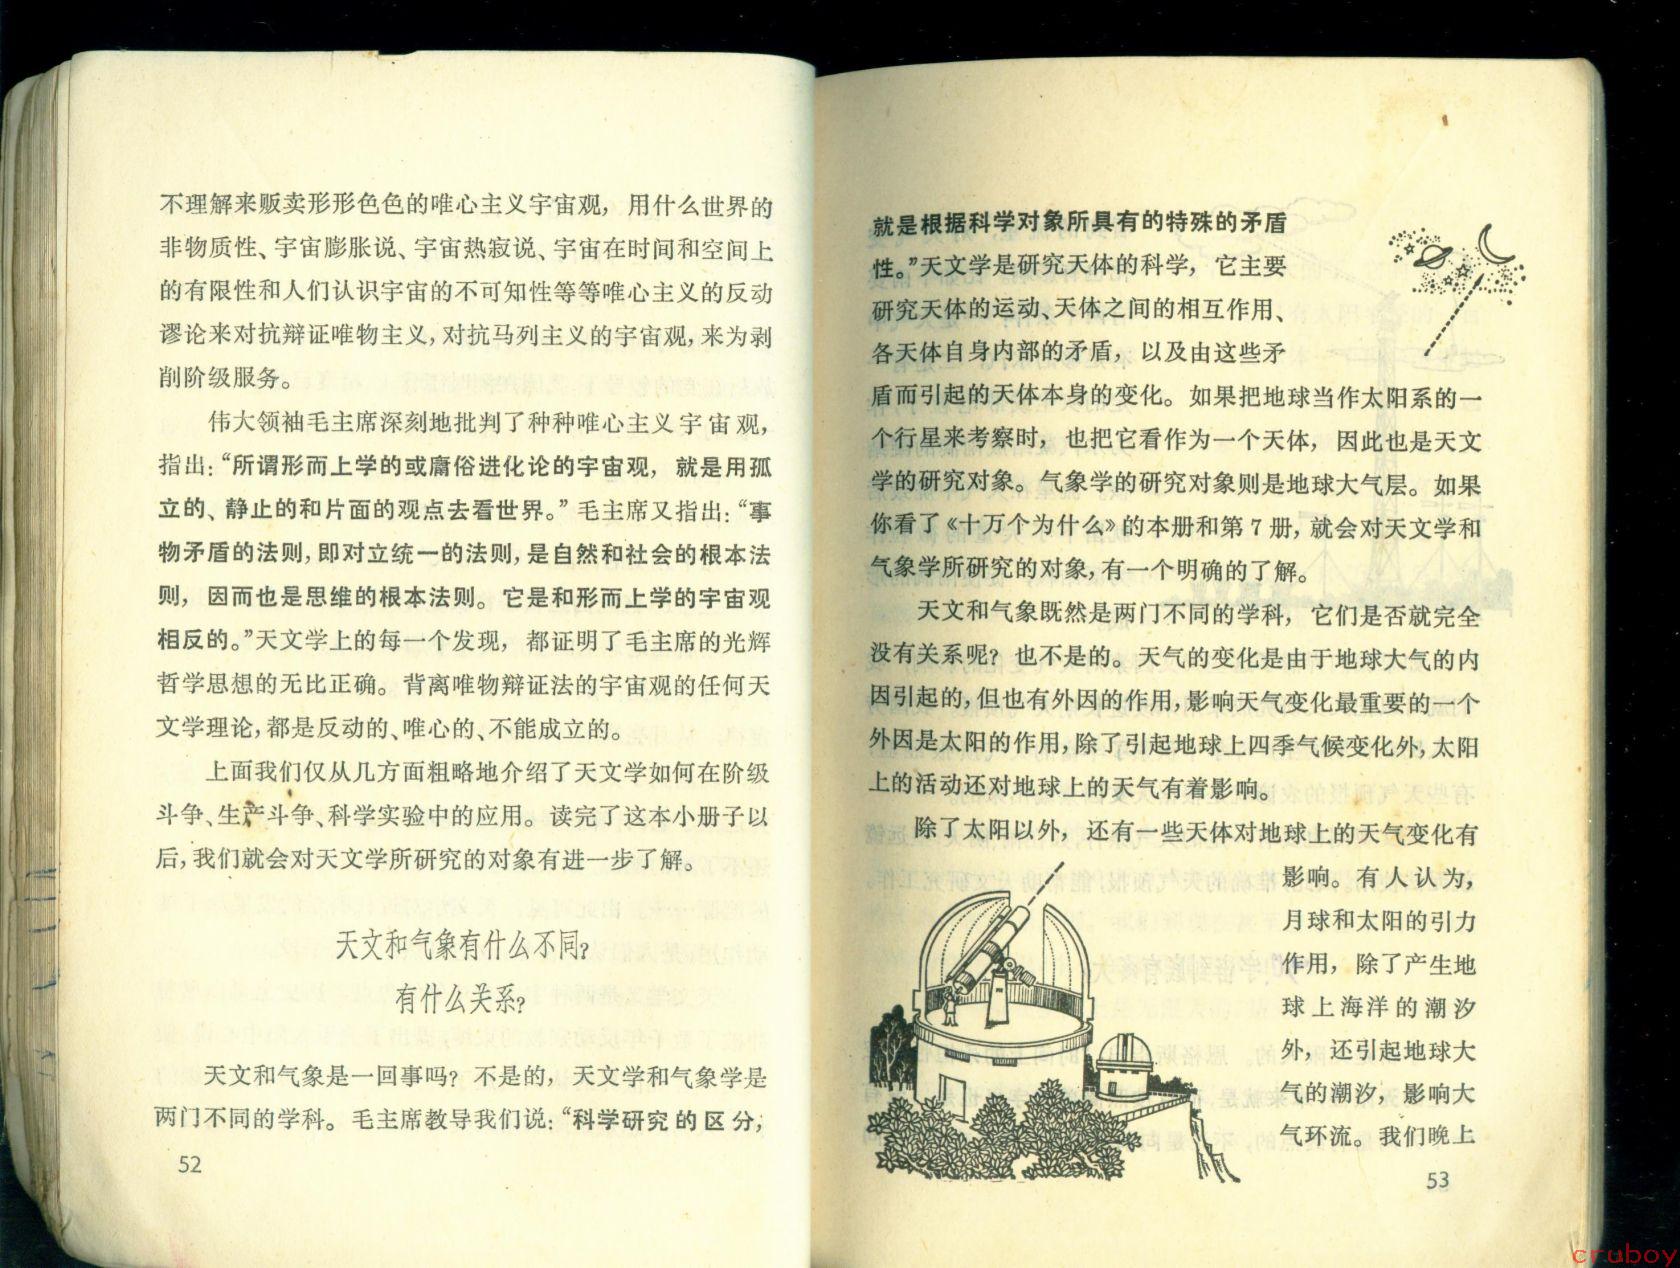 不理解来贩卖形形色色的唯心主义宇宙观，用什么世界的
非物质性、宇宙膨胀说、宇宙热寂说、宇宙在时间和空间上
的有限性和人们认识宇宙的不可知性等等唯心主义的反动
谬论来对抗辩证唯物主义，对抗马列主义的宇宙观，来为剥
削阶级服务。
伟大领袖毛主席深刻地批判了种种唯心主义宇宙观，
指出：“所谓形而上学的或庸俗进化论的宇宙观，就是用孤
立的、静止的和片面的观点去看世界。”毛主席又指出：“事
物矛盾的法则，即对立统一的法则，是自然和社会的根本法
则，因而也是思维的根本法则。它是和形而上学的宇宙观
相反的。”天文学上的每一个发现，都证明了毛主席的光辉
哲学思想的无比正确。背离唯物辩证法的宇宙观的任何天
文学理论，都是反动的、唯心的、不能成立的。
上面我们仅从几方面粗略地介绍了天文学如何在阶级
斗争、生产斗争、科学实验中的应用。读完了这本小册子以
后，我们就会对天文学所研究的对象有进一步了解。
天文和气象有什么不同？
有什么关系？
天文和气象是一回事吗？不是的，天文学和气象学是
两门不同的学科。毛主席教导我们说：“科学研究的区分，
52
就是根据科学对象所具有的特殊的矛盾
性。”天文学是研究天体的科学，它主要
研究天体的运动、天体之间的相互作用、
各天体自身内部的矛盾，以及由这些矛
盾而引起的天体本身的变化。如果把地球当作太阳系的一
个行星来考察时，也把它看作为一个天体，因此也是天文
学的研究对象。气象学的研究对象则是地球大气层。如果
你看了《十万个为什么》的本册和第7册，就会对天文学和
气象学所研究的对象，有一个明确的了解。
天文和气象既然是两门不同的学科，它们是否就完全
没有关系呢？也不是的。天气的变化是由于地球大气的内
因引起的，但也有外因的作用，影响天气变化最重要的一个
外因是太阳的作用，除了引起地球上四季气候变化外，太阳
上的活动还对地球上的天气有着影响。
除了太阳以外，还有一些天体对地球上的天气变化有
影响。有人认为，
月球和太阳的引力
作用，除了产生地
球上海洋的潮汐
外，还引起地球大
气的潮汐，影响大
气环流。我们晚上
53
cruboy